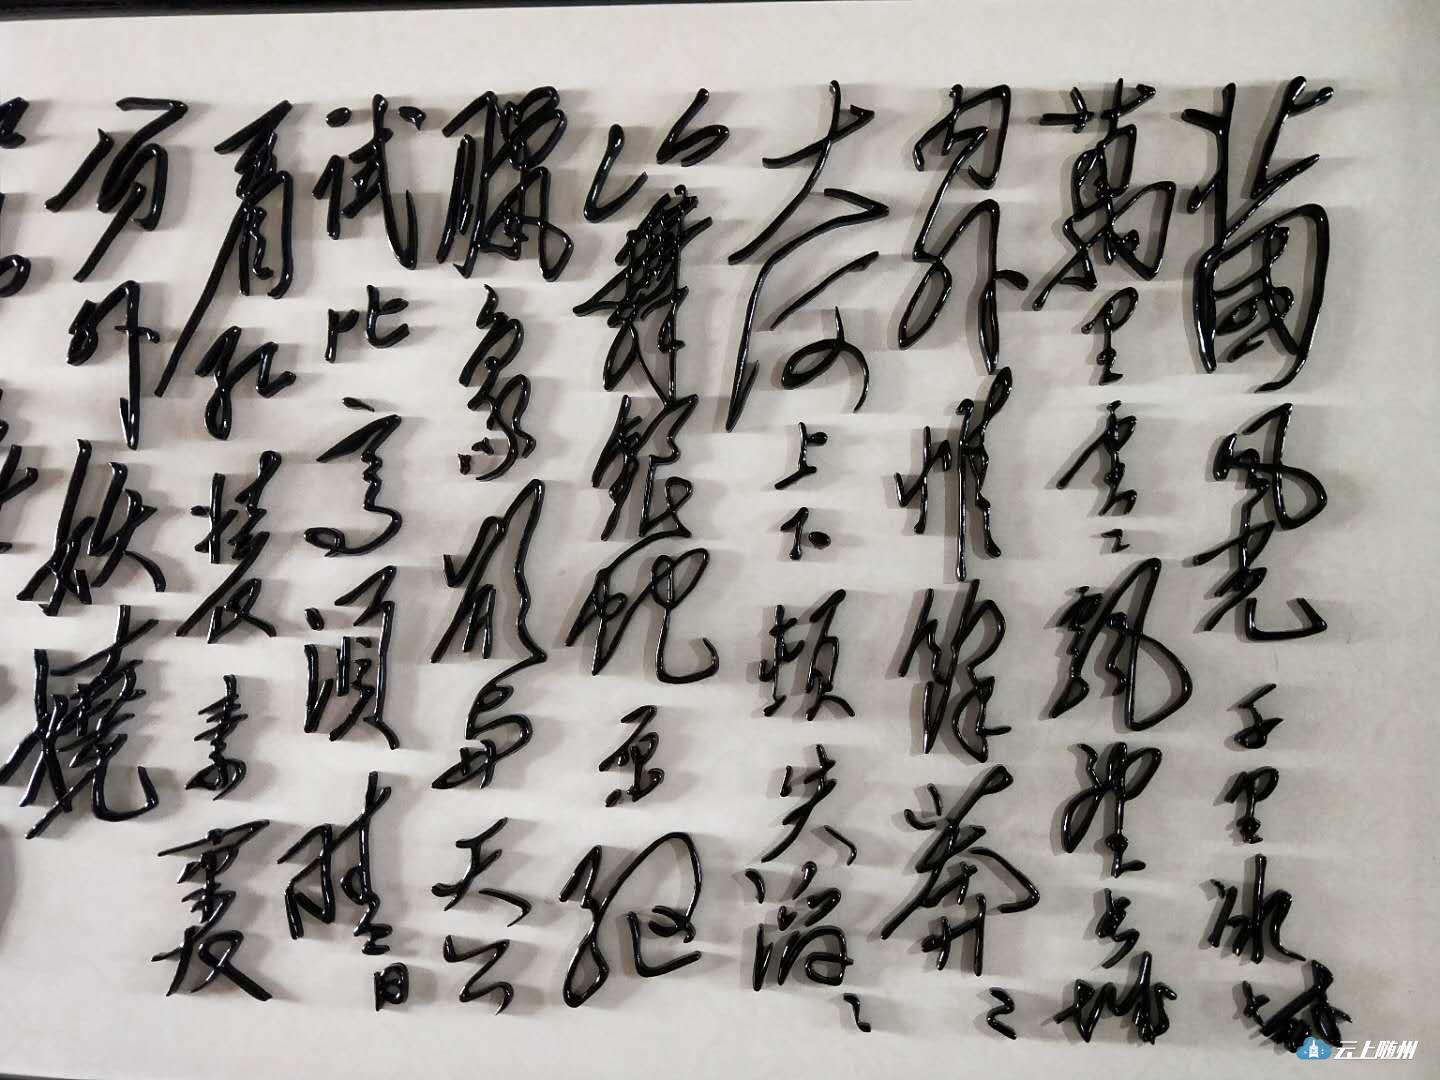 北國風光千里冰封
萬里雪飄望長城
內外惟餘莽〻
大河上下頓失滔〻
山舞銀蛇原馳
臘象欲与天公
試比高須晴日
看紅裝素裹
分外妖嬈
云上随州